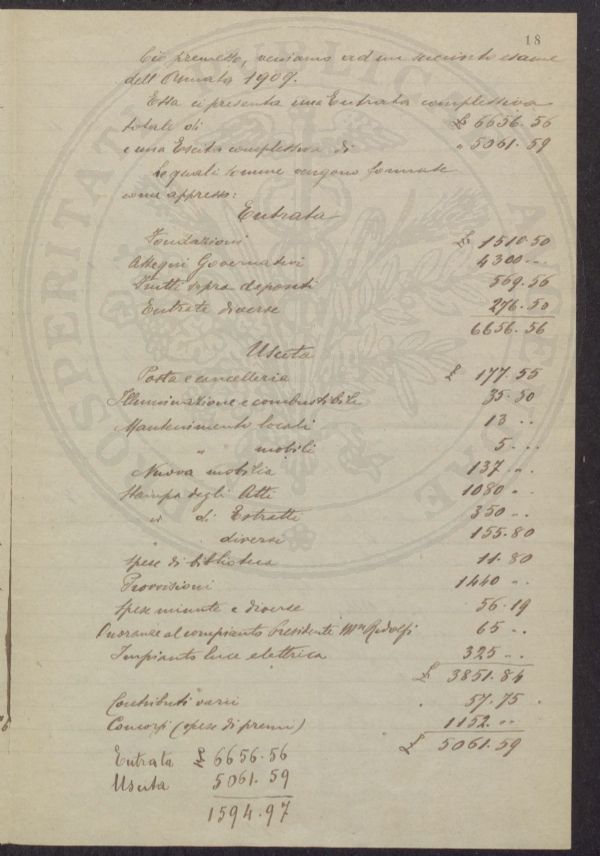 18
Ciò premesso, veniamo ad un succinto esame
dell'Annata 1909.
Essa ci presenta una Entrata complessiva
totale di £ 6656.56
e una Uscita complessiva di " 5061.59
le quali somme vengono formate
come appresso:
Entrata
Fondazioni £ 1510.50
Assegni Governativi 4300 "
Frutti sopra depositi 569.56
Entrate diverse 276.50
6656.56
Uscita
Posta e cancelleria £ 177.55
Illuminazione e combustibile 35.50
Mantenimento locali 13 "
" mobili 5 "
Nuova mobilia 137 "
Stampa degli Atti 1080 "
" di Estratti 350 "
" diversi 155.80
Spese di biblioteca 11.80
Provvisioni 1440 "
Spese minute e diverse 56.19
Onoranze al compianto Presidente Mse Ridolfi 65 "
Impianto luce elettrica 325 "
£ 3851.84
Contributi varii " 57.75
Concorsi (spese di premi) 1152 "
£ 5061.59
Entrata £ 6656.56
Uscita 5061.59
1594.97
PROSPERITATI PUBLICAE